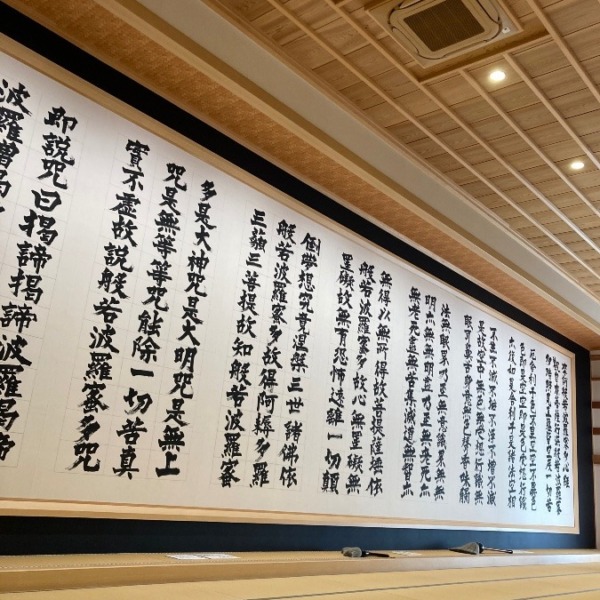 摩訶般若波羅蜜多心経
観自在菩薩行深般若波羅蜜
多時照見五蘊皆空度一切苦
厄舎利子色不異空空不異色
色即是空空即是色受想行識
亦復如是舎利子是諸法空相
不生不滅不垢不浄不増不減
是故空中無色無受想行識無
眼耳鼻舌身意無色声香味觸
法無眼界乃至無意識界無無
明亦無無明盡乃至無老死亦
無老死盡無苦集滅道無智亦
無得以無所得故菩提薩埵依
般若波羅蜜多故心無罣礙無
罣礙故無有恐怖遠離一切顛
倒夢想究竟涅槃三世諸佛依
般若波羅蜜多故得阿耨多羅
三藐三菩提故知般若波羅蜜
多是大神咒是大明咒是無上
咒是無等等咒能除一切苦真
實不虚故説般若波羅蜜多咒
即説咒曰揭諦揭諦波羅揭諦
波羅僧揭